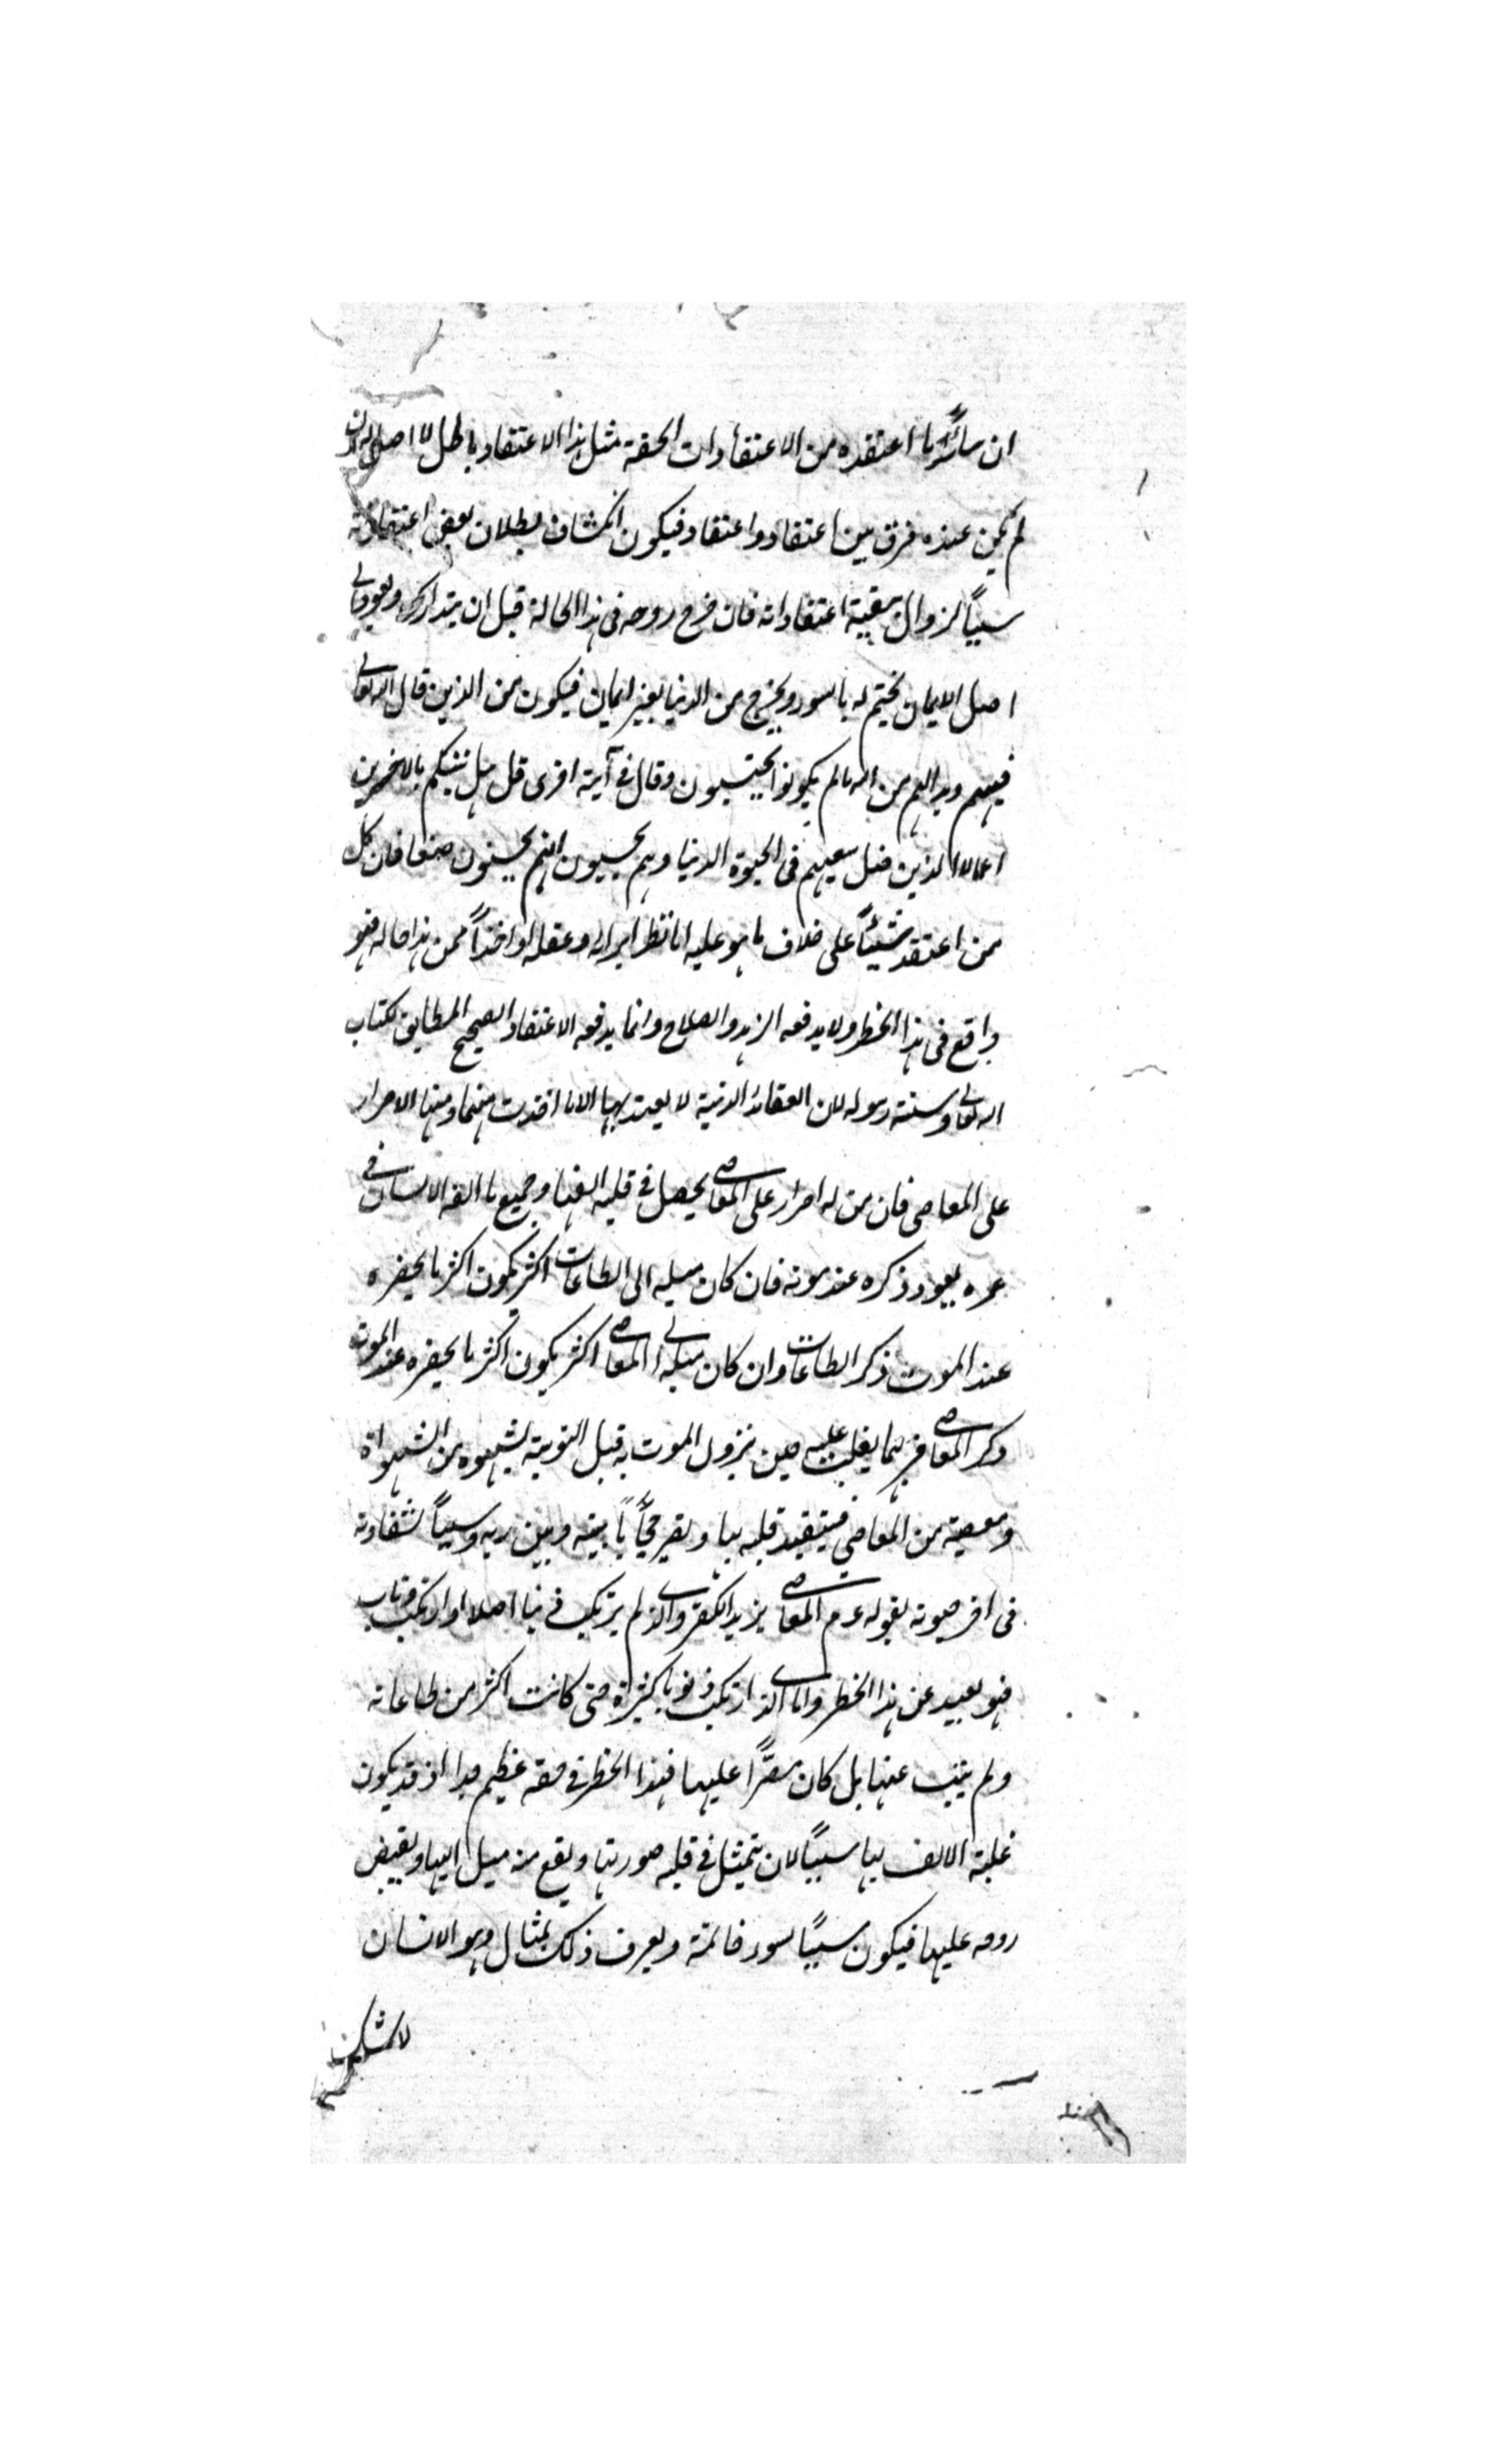 ان سائر ما اعتقده من الاعتقادات الحقة مثل هذا الاعتقاد باطل لا اصل له ان
لم يكن عنده فرق بين اعتقاد واعتقاد فيكون انكشاف بطلان بعض اعتقاداته
سبباً لزوال بقية اعتقاداته فان خرج روحه فى هذا الحالة قبل ان يتدارك ويعود الى
اصل الايمان يختم له بالسوء ويخرج من الدنيا بغير ايمان فيكون من الذين قال الله تعالى
فيهم وبدا لهم من الله مالم يكونوا يحتسبون وقال فى آية اخرى قل هل ننبئكم بالاخسرين
اعمالا الذين ضل سعيهم فى الحيوة الدنيا وهم يحسبون انهم يحسنون صنعا فان كل
من اعتقد شيئاً على خلاف ما هو عليه اما نظرا برايه وعقله او اخذاً ممن هذا حاله فهو
واقع فى هذا الخطر ولا يدفعه الزهد والصلاح وانما يدفعه الاعتقاد الصحيح المطابق لكتاب
الله تعالى وسنة رسوله لان العقائد الدنية لا يعتد بها الا ما اخذت منهما ومنها الاصرار
على المعاصى فان من له اصرار على المعاصى يحصل فى قلبه الفها وجميع ما الفه الانسان فى
عمره يعود ذكره عند موته فان كان ميله الى الطاعات اكثر يكون اكثر ما يحضره
عند الموت ذكر الطاعات وان كان ميله الى المعاصى اكثر يكون اكثر ما يحضره عند الموت
ذكر المعاصى فربما يغلب عليه حين نزول الموت به قبل التوبة شهوه من الشهواة
ومعصية من المعاصى فيتقيد قلبه بها وتصير حجاباً بينه وبين ربه وسبباً لشقاوته
فى اخر حيوته لقوله عم المعاصى يزيد الكفر والذى لم يرتكب ذنبا اصلا او ارتكب وتاب
فهو بعيد عن هذا الخطر واما الذى ارتكب ذنوبا كثيراة حتى كانت اكثر من طاعاته
ولم يتب عنها بل كان مصرّاً عليها فهذا الخطر فى حقه عظيم جدا اذ قد يكون
غلبة الالف بها سبباً لان يتمثل فى قلبه صورتها ويقع منه ميل اليها ويقبض
روحه عليها فيكون سبباً لسوء خاتمته ويعرف ذلك بمثال وهو الانسان
لا شك